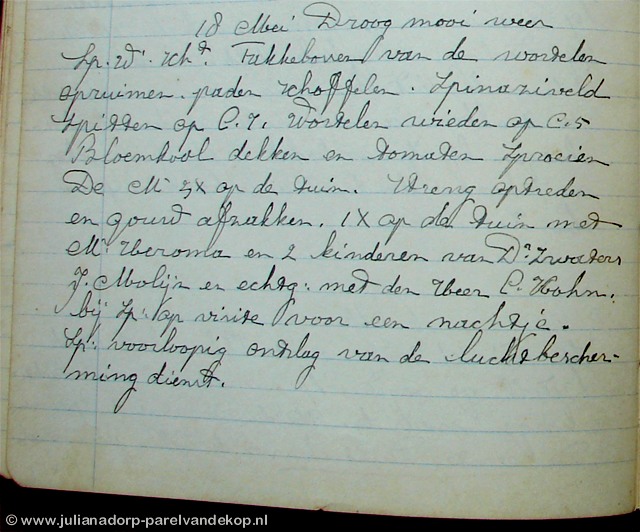 18 Mei Droog mooi weer
Sp. W. Sch^t. Takkeboven van de wortelen
opruimen. paden schoffelen. Spinaziveld
Spitten op C. 7. Wortelen wieden op C. 5
Bloemkool dekken en tomaten Sproeien
De M^r 3X op de tuin. Streng optreden
en gourd afzakken. 1X op de tuin met
M^r en 2 kinderen van D^r Zwaters
J. Molijn en echtg. met den Heer C. Hohn.
bij Sp. op visite voor een nachtje.
Sp. voorloopig ontslag van de luchtbescher-
ming dienst.
© www.julianadorp-parelvandekop.nl